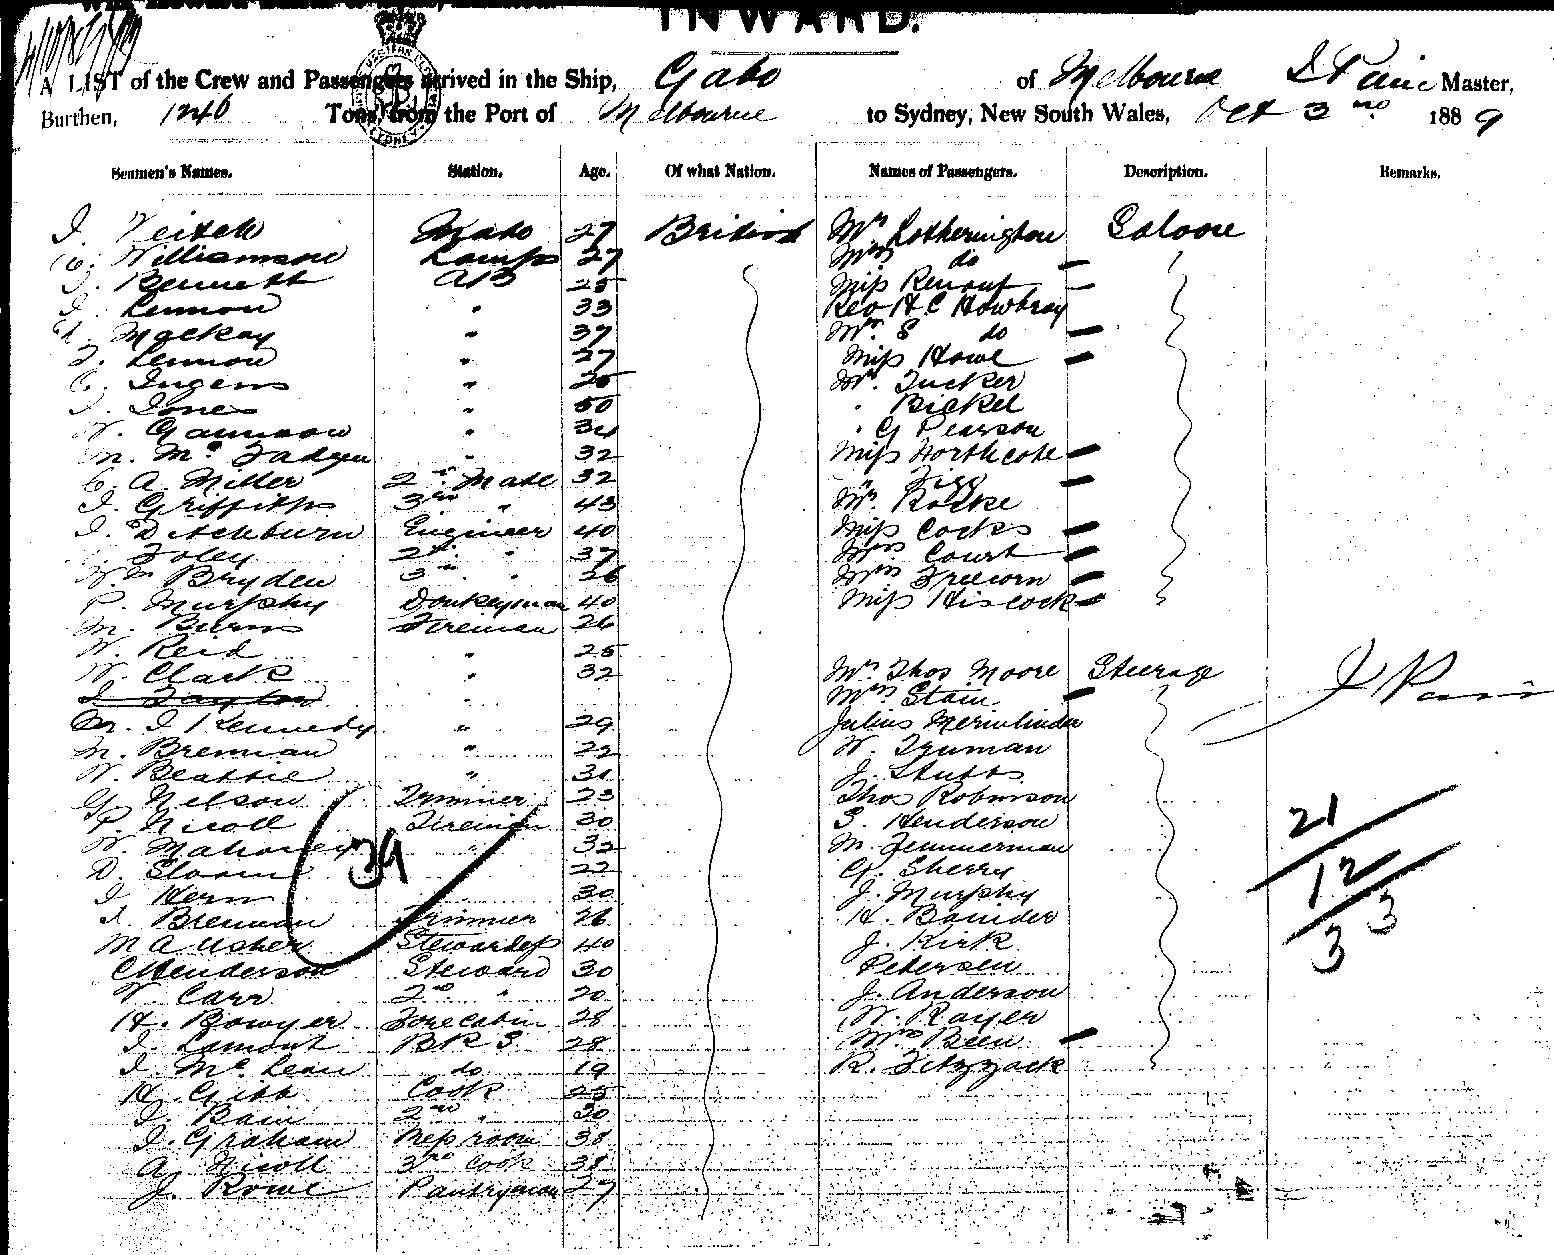 INWARD.
A LIST of the Crew and Passengers arrived in the Ship, Gabo of Melbourne Master,
Burthen, 1246 Tons, from the Port of Melbourne to Sydney, New South Wales, Oct 3rd 1889
Seamen's Names. Station. Age. Of what Nation. Names of Passengers. Description. Remarks.
J. Veitch 27 British Mr Lotherington Saloon
C. Williamson Lamps 27 Mrs do
J. Bennett AB 25 Miss Renouf
J. Lennon " 33 Rev H C Howbray
Mackay " 37 Mrs S do
J. Lennon " 27 Miss Howe
C. Ingers " 25 Mr. Tucker
J. Jones " 50 " Bickel
W. " 34 " G Pearson
M. Mc Fadgen " 32 Miss Northcote
C. A. Miller 2nd Mate 32 "
J. Griffiths 3rd " 43 Mr. Rocke
J. Ditchburn Engineer 40 Miss Cocks
Foley 2nd " 37 Mrs Court
Wm Bryden 3rd " 26 Mrs Freeorn
P. Murphy Donkeyman 40 Miss Hiscock
M. Burns Fireman 26
W. Reid " 25
W. Clark " 32 Mr Thos Moore Steerage
J. Taylor " Mrs Stain
M. J Kennedy " 29 Julius
M. Brennan " 22 W. Truman
W. Beattie " 31 J. Stubbs
G. Nelson Trimmer 23 Thos Robinson
P. Nicoll Fireman 30 S. Henderson
W. Mahoney " 32 M. Zimmerman
D. Sloam 22 G. Sherry
J. Kern 30 J. Murphy
J. Brennan Trimmer 26 H. Bainder
M A Usher Stewardess 40 J. Kirk
C Henderson Steward 30 Petersen
W Carr 2nd " 20 J. Anderson
H. Bowyer Forecabin 28 W. Rayer
J. Lamont B R S 28 Mrs Been
J. Mc Lean do 19 R. Fitzzack
H. Gibb Cook 25
J. Bain 2nd " 30
J. Graham Mess room 38
A. Nicoll 3rd Cook 38
J. Rowe Pantryman 27
39
21
12
3
3